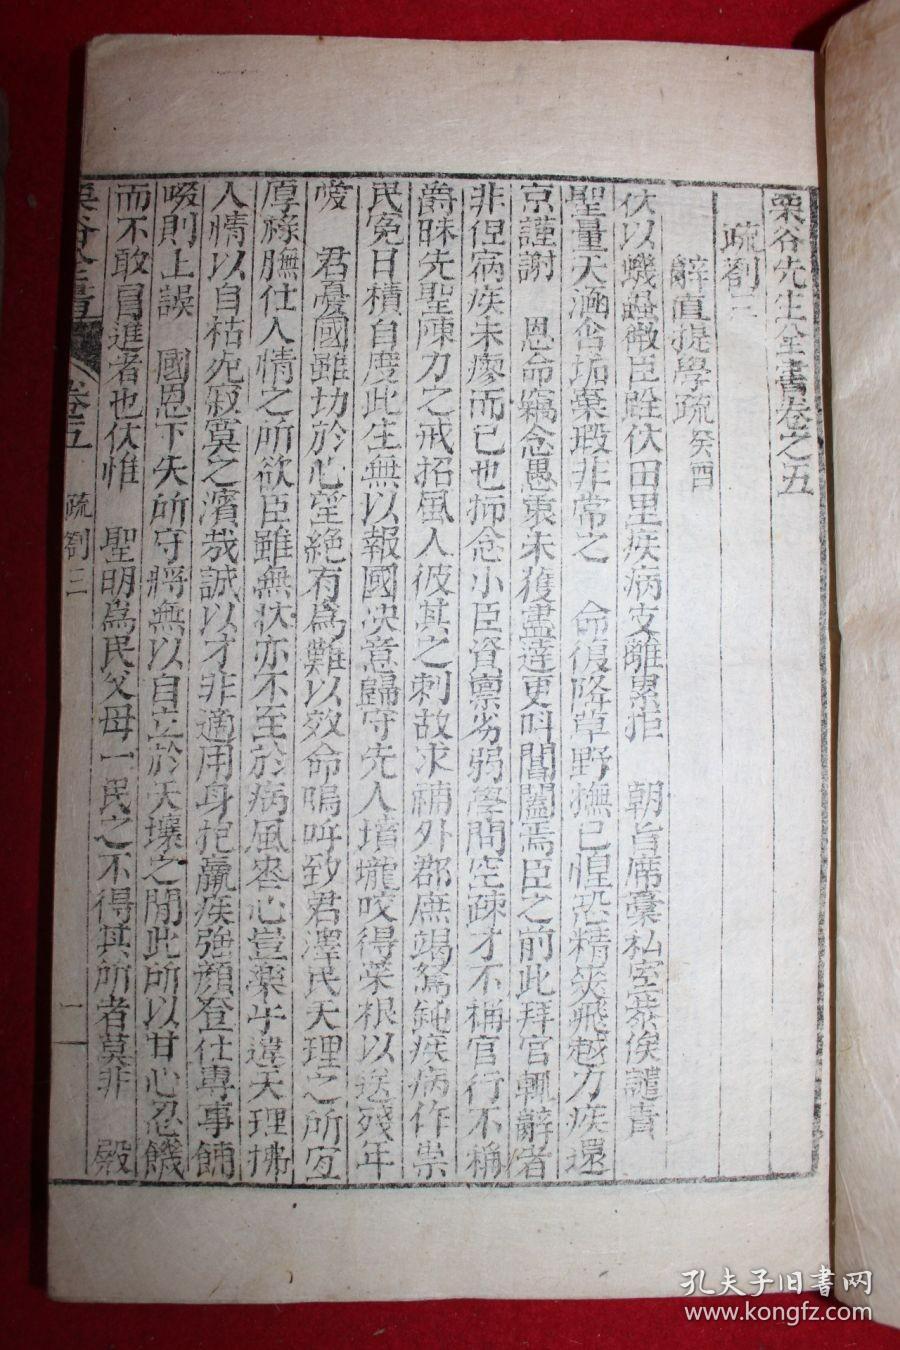 栗谷先生全書卷之五
疏劄三
辭直提學疏 癸酉
伏以蟣蝨微臣跧伏田里疾病支離累拒 朝旨席藁私室恭俟譴責
聖量天涵含垢棄瑕非常之 命復降草野撫已惶恐精爽飛越力疾還
京謹謝 恩命竊念愚衷未獲盡達更叫閶闔焉臣之前此拜官輒辭者
非但病疾未瘳而已也抑念小臣資稟劣弱學問空疎才不稱官行不稱
爵昧先聖陳力之戒招風人彼其之刺故求補外郡庶竭駑鈍疾病作祟
民免日積自度此生無以報國決意歸守先人墳壠咬得菜根以送殘年
愛 君憂國雖切於心望絕有爲難以效命嗚呼致君澤民天理之所宜
厚祿膴仕人情之所欲臣雖無狀亦不至於病風喪心豈樂乎違天理拂
人情以自枯死寂寞之濱哉誠以才非適用身抱羸疾強顏登仕專事餔
啜則上誤 國恩下失所守將無以自立於天壤之閒此所以甘心忍饑
而不敢冒進者也伏惟 聖明爲民父母一民之不得其所者莫非 殿
栗谷全書 卷五 疏劄三 一
孔夫子旧書网
www.kongfz.com